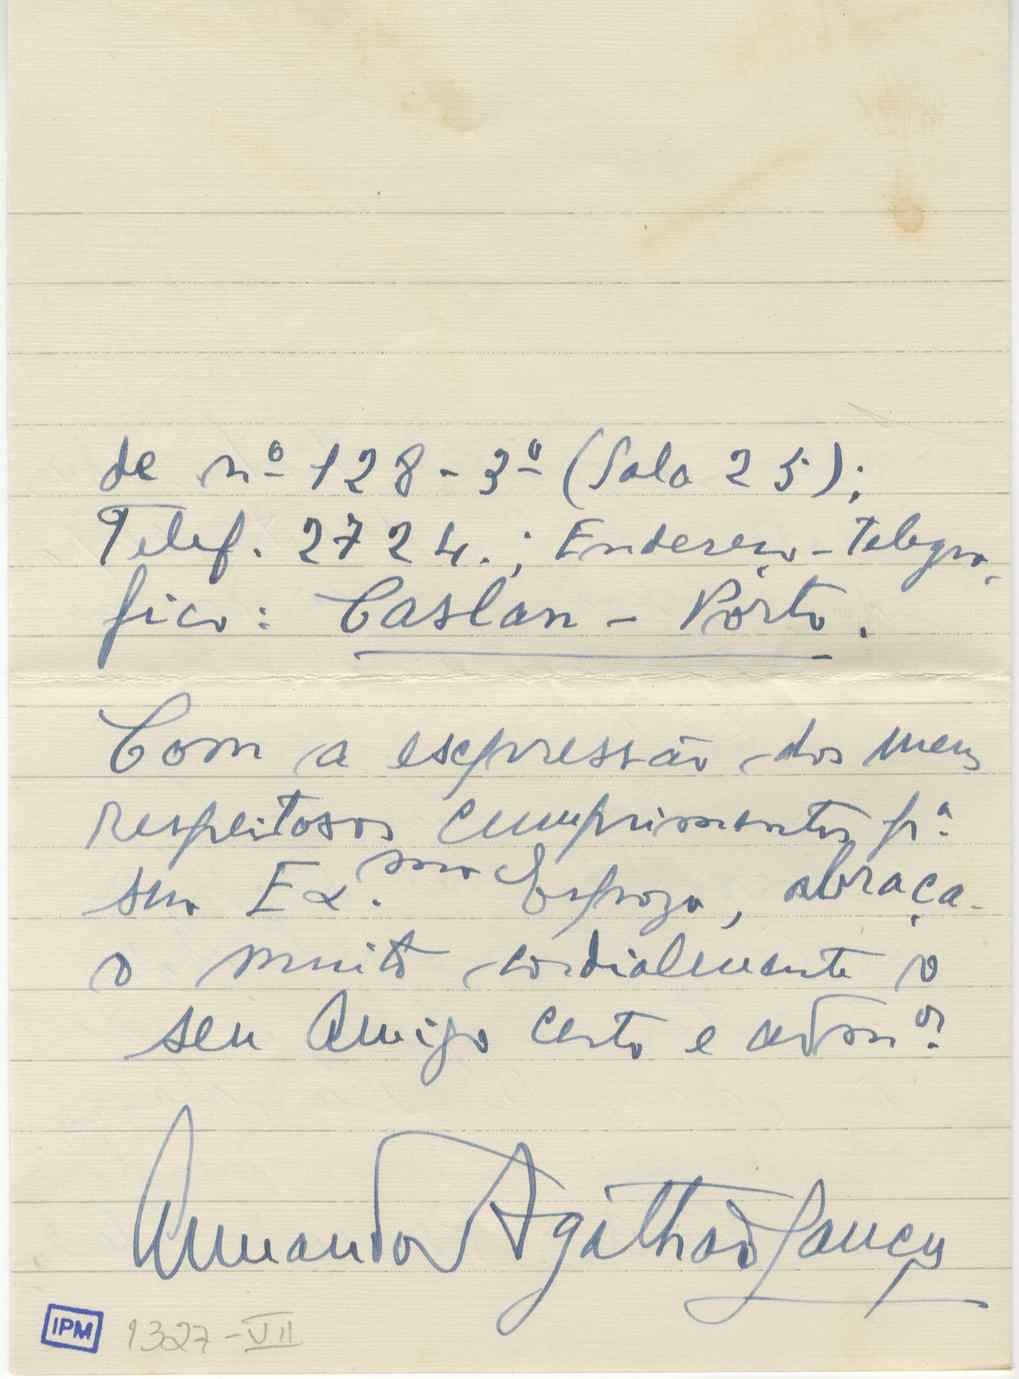 de nº 128 - 3º (Sala 25);
Telef. 2724.; Endereço-telegra-
fico: Caslan - Porto.
Com a expressão dos meus
respeitosos cumprimentos p.ª
sua Ex.ma Espoza, abraça-
o muito cordialmente o
seu Amigo certo e adm.or
Armando Agathão Lança
IPM 1327-VII